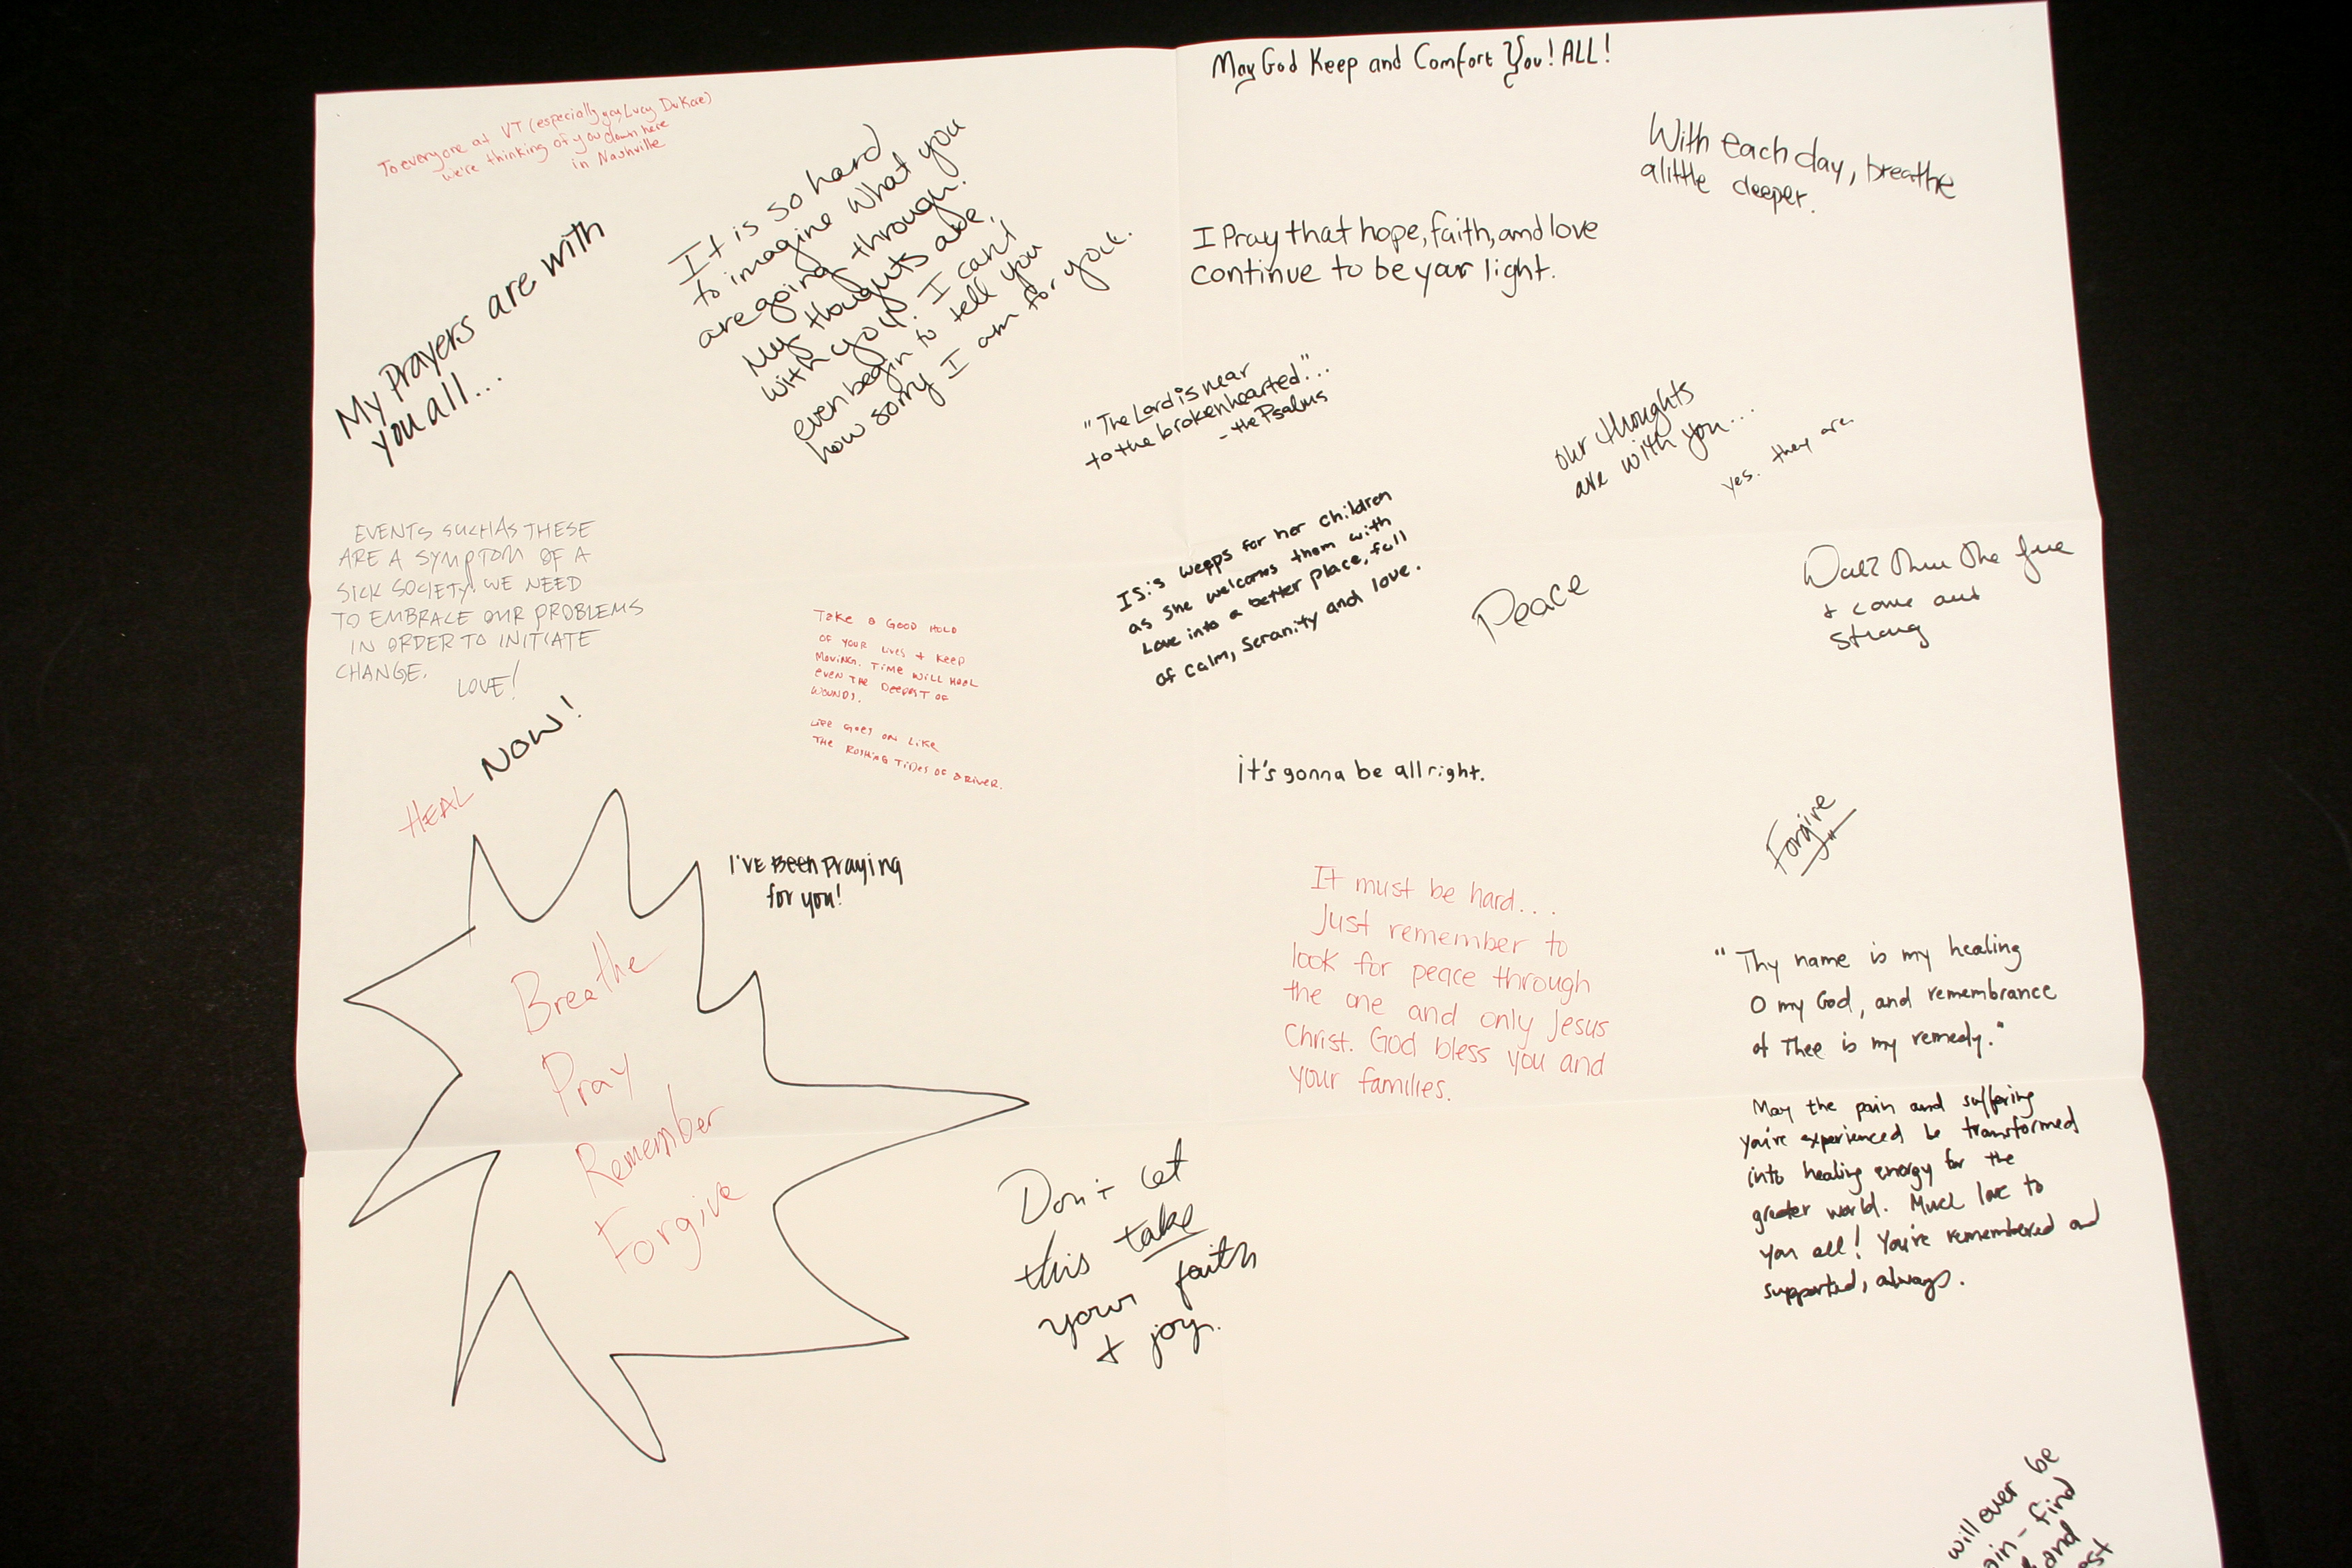 May God Keep and Comfort You! ALL!
To everyone at VT (especially you, Lucy DuKate)
we're thinking of you down here
in Nashville
With each day, breathe
a little deeper.
My Prayers are with
you all...
It is so hard
to imagine what you
are going through.
My thoughts are
with you. I can't
even begin to tell you
how sorry I am for you.
I Pray that hope, faith, and love
continue to be your light.
"The Lord is near
to the brokenhearted"...
- the Psalms
our thoughts
are with you...
yes. they are.
EVENTS SUCH AS THESE
ARE A SYMPTOM OF A
SICK SOCIETY. WE NEED
TO EMBRACE OUR PROBLEMS
IN ORDER TO INITIATE
CHANGE.
LOVE!
Take a Good Hold
of your lives + keep
Moving. Time will heal
even the deepest of
wounds.
Life goes on like
the rushing tides of a river.
Isis weeps for her children
as she welcomes them with
Love into a better place, full
of calm, seranity and love.
Peace
Walk thru the fire
+ come out
strong
HEAL NOW!
it's gonna be all right.
Forgive
I've Been Praying
for you!
Breathe
Pray
Remember
Forgive
It must be hard...
Just remember to
look for peace through
the one and only Jesus
Christ. God bless you and
your families.
"Thy name is my healing
O my God, and remembrance
of Thee is my remedy."
May the pain and suffering
you're experienced be transformed
into healing energy for the
greater world. Much love to
you all! You're remembered and
supported, always.
Don't let
this take
your faith
+ joy.
will ever be
find
and